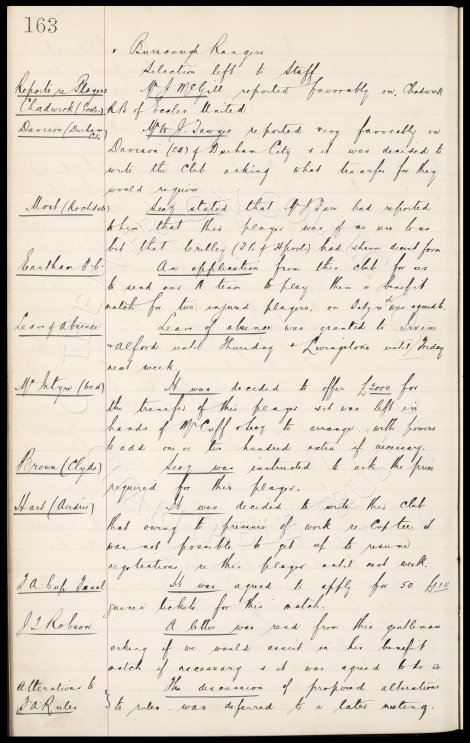 163
v Burscough Rangers
Selection left to Staff
Reports re Players
Mr J McGill reported favorably on Chadwick
Chadwick (Eccles)
R.B of Eccles United.
Davison (Durham City)
Mr W. J. Sawyer reported very favorably on
Davison (CB) of Durham City & it was decided to
write the club asking what transfer fee they
would require.
Most (Rochdale)
Secy stated that Mr had reported
to him that this player was of no use to us
but that Crelley ( of Hpool) had shewn decent form
Eastham F.C.
An application from this club for us
to send our A team to play them a benefit
match for two injured players, on was agreed to.
Leave of Absence
Leave of absence was granted to Irvine
& Alford until Thursday & Livingstone until Friday
next week
McIntyre (Wed)
It was decided to offer £2000 for
the transfer of this player & it was left in
hands of Mr Cuff & Secy to arrange with powers
to add one or two hundred extra if necessary.
Brown (Clyde)
Secy was instructed to ask the price
required for this player.
Hart (Airdrie)
It was decided to write this club
that owing to pressure of work re Cup ties it
was not possible to get up to resume
negotiations re this player until next week.
F A Cup Final
It was agreed to apply for 50 £1 1 0
guinea tickets for this match.
J. Robson
A letter was read from this gentleman
asking if we would assist in his benefit
match if necessary & it was agreed to do so
Alterations to
F A Rules
The discussion of proposed alterations
to rules was deferred to a later meeting.